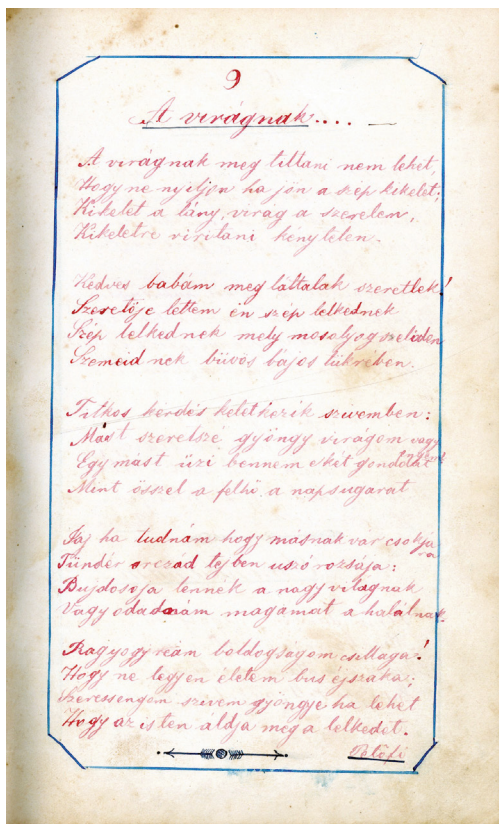 9
A virágnak....
A virágnak meg tillani nem lehet,
Hogy ne nyiljon ha jön a szép kikelet;
Kikelet a lány, virág a szerelem,
Kikeletre virilani kénytelen.
Kedves babám meg láttalak szeretlek!
Szeretöje lettem én szép lelkednek
Szép lelkednek mely mosolyog szeliden
Szemeidnek büvös bájos tükrében.
Titkos kérdés keletkezik szivemben:
Mást szeretszé gyöngy virágom vagy engem?
Egymást üzi bennem e két gondolat
Mint összel a felhö a napsugarat
Jaj ha tudnám hogy másnak vár csokjára
Tündér orczád tejben uszó rozsája:
Bujdosoja lennék a nagy világnak
Vagy odadnám magamat a halálnak.
Ragyogj reám boldogságom csillaga!
Hogy ne legyen életem bus éjszaka;
Szeressengem szivem gyöngye ha lehet
Hogy az isten áldja meg a lelkedet.
Petöfi